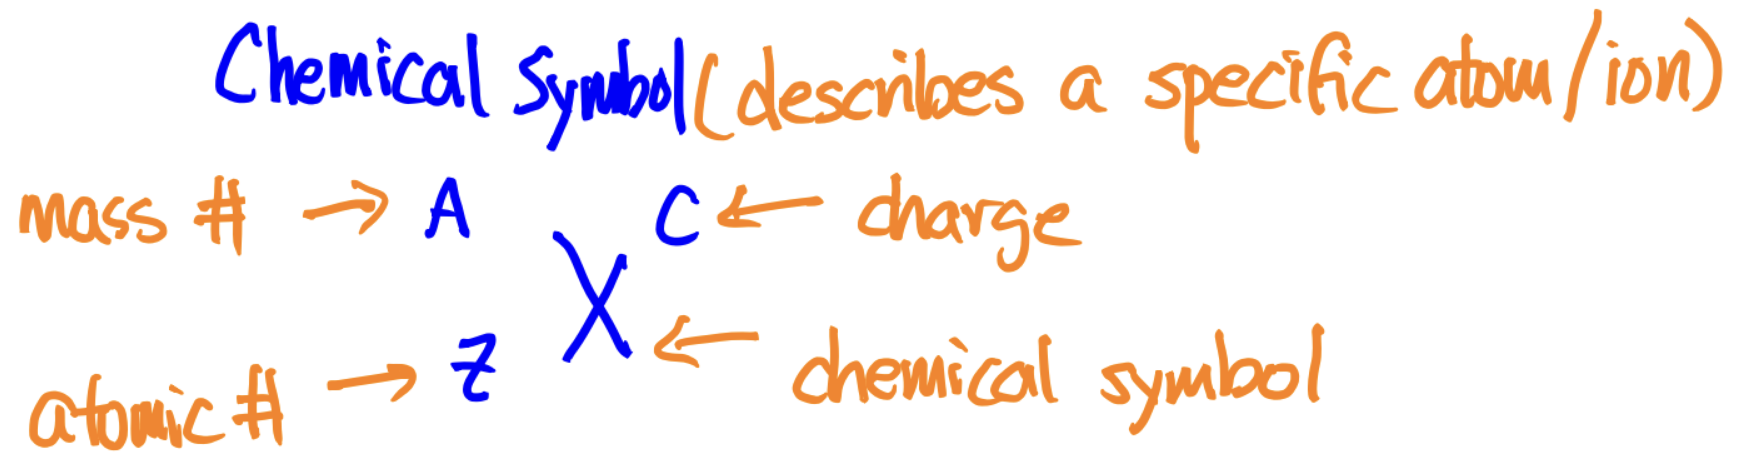 Chemical Symbol (describes a specific atom/ion)
mass # → A C ← charge
X
← chemical symbol
atomic # → Z